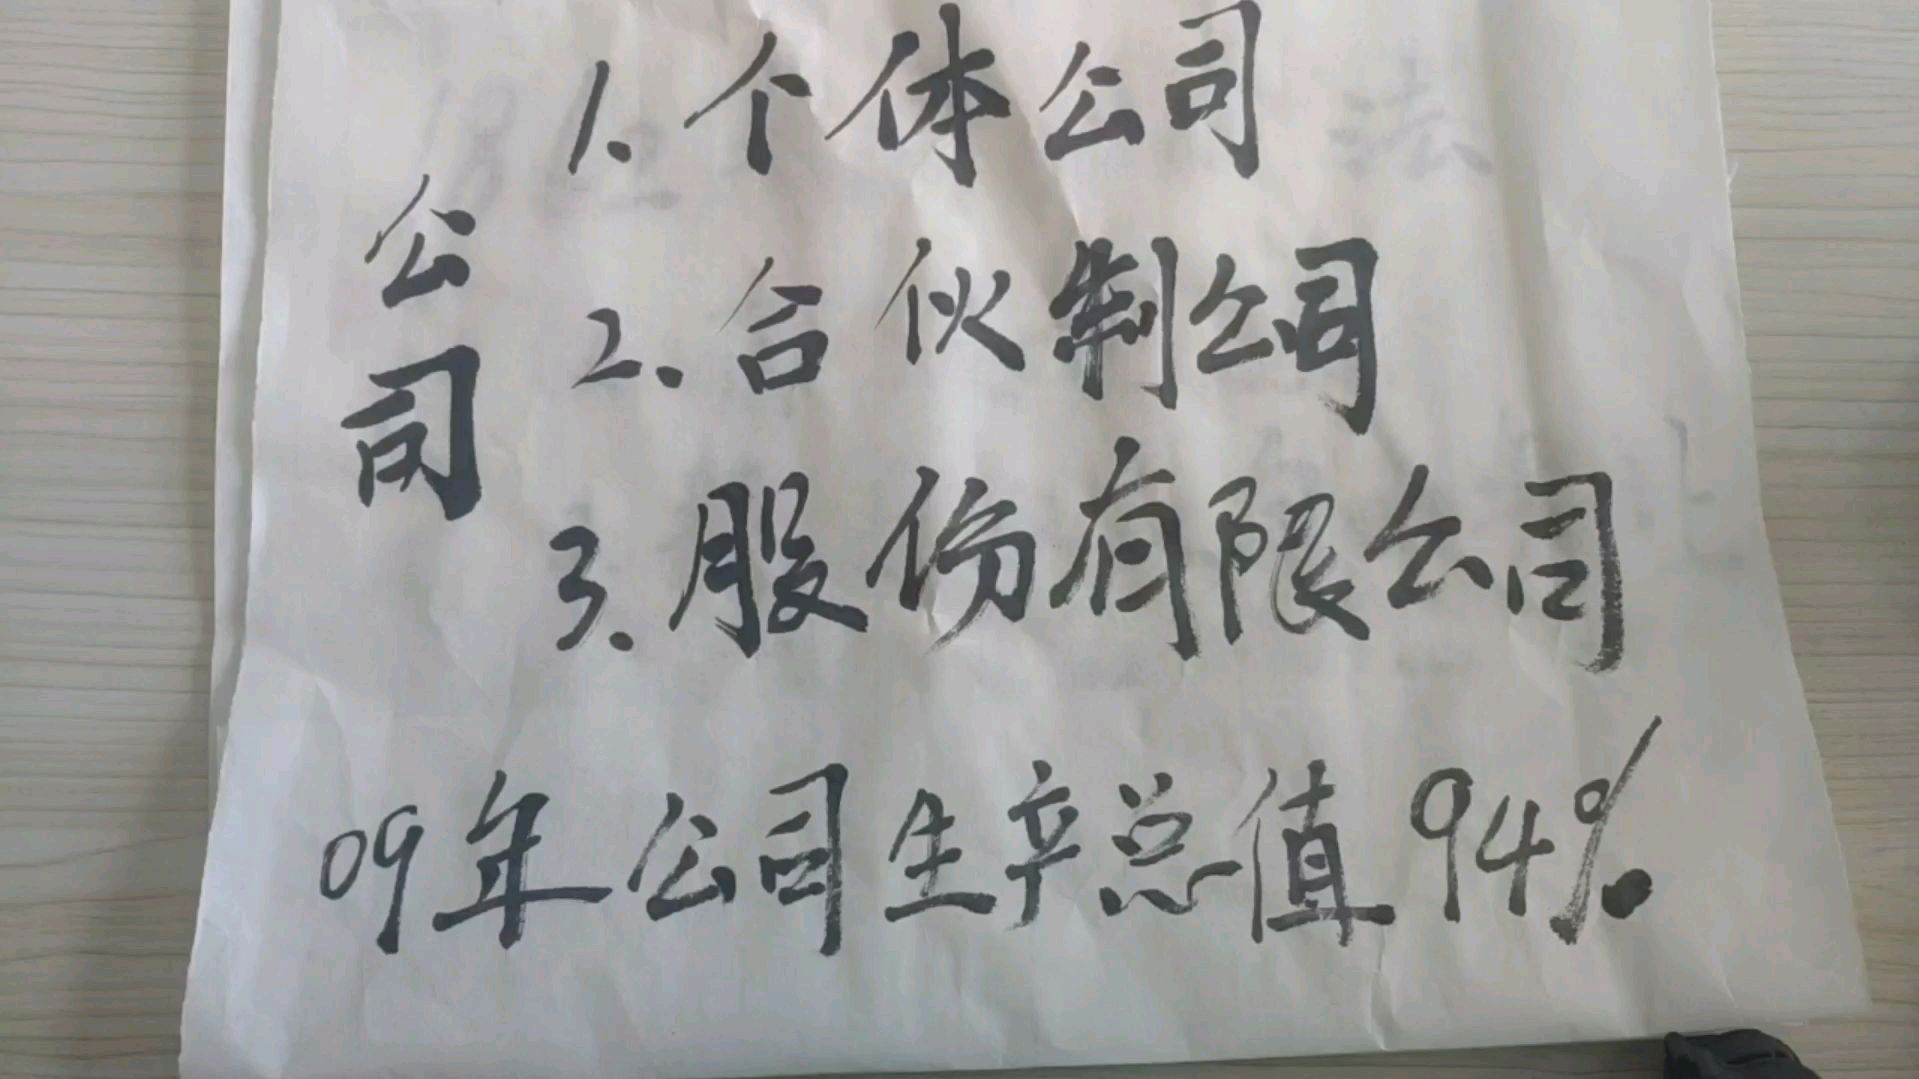 公司
1.个体公司
2.合伙制公司
3.股份有限公司
09年公司生产总值94%